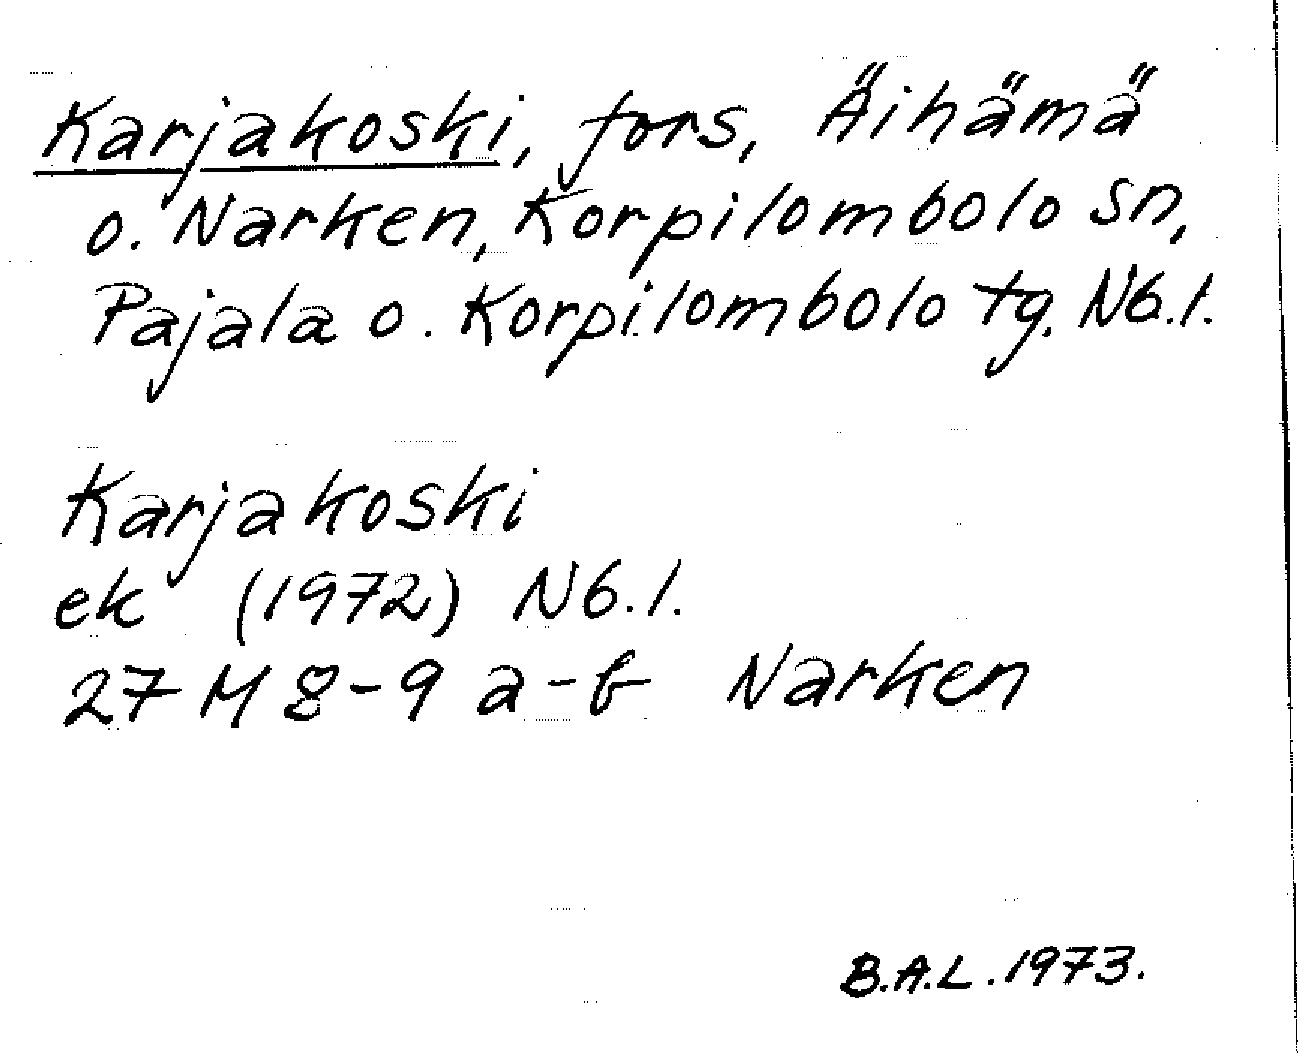 Karjakoski, fors, Äihämä
o. Narken, Korpilombolo sn,
Pajala o. Korpilombolo tg. Nb.l.
Karjakoski
ek (1972) Nb.l.
27 M 8-9 a-b Narken
B.A.L. 1973.